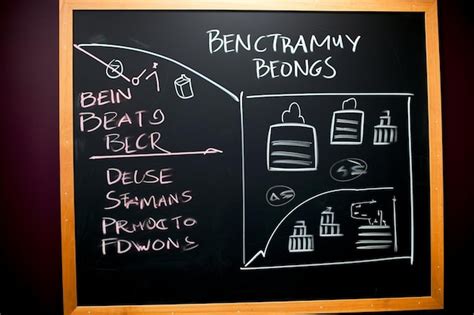 BENCTRAMUY
BEONGS
BEIN
BEATS
BECR
DEUSE
STAMANS
PRMOCTO
FDWONS